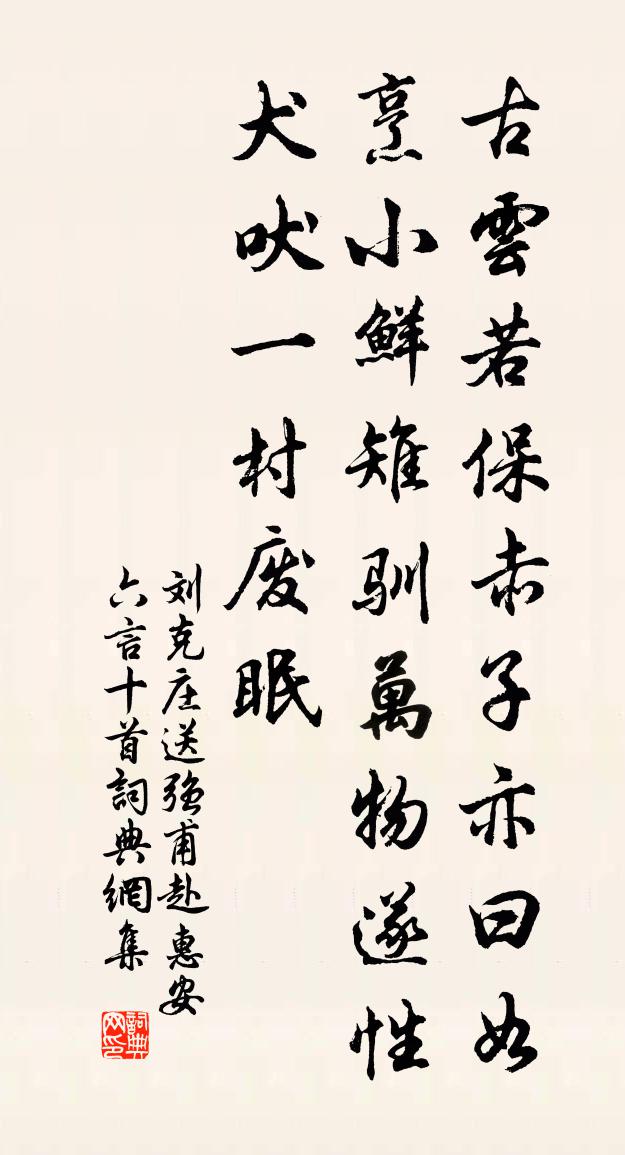 古雲若保赤子亦曰如
烹小鮮雉馴萬物遂性
犬吠一村废眠
刘克庄送强甫赴惠安
六言十首詞典網集
詞典網印